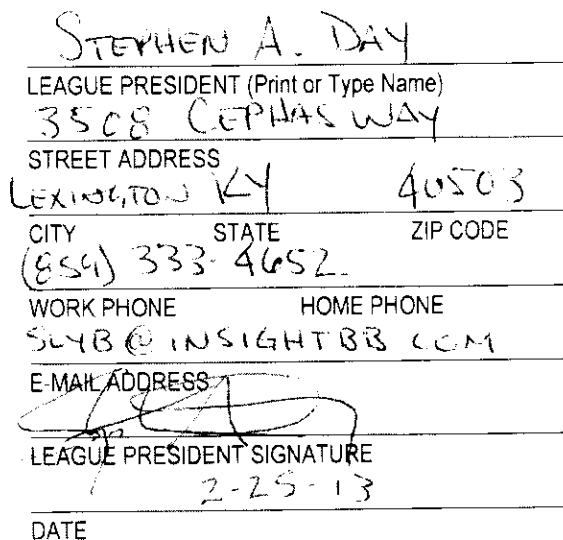 STEPHEN A. DAY
LEAGUE PRESIDENT (Print or Type Name)
3508 CEPHAS WAY
STREET ADDRESS
LEXINGTON KY 40503
CITY STATE ZIP CODE
(859) 333-4652
WORK PHONE HOME PHONE
SLYB@INSIGHTBB COM
E-MAIL ADDRESS
LEAGUE PRESIDENT SIGNATURE
2-25-13
DATE